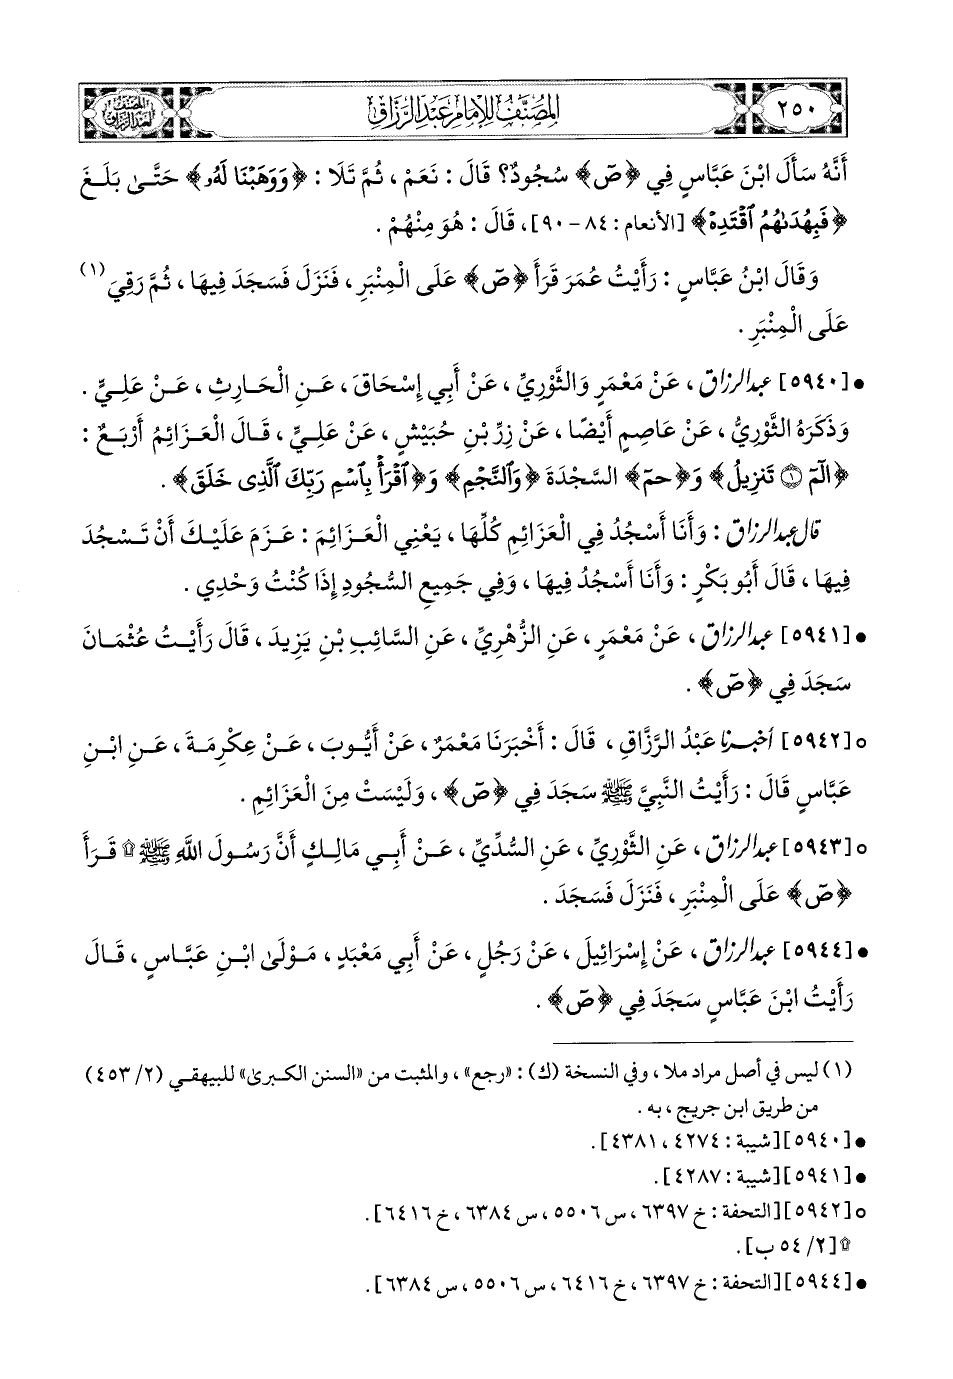 ٢٥٠
المصنف للإمام عبد الرزاق
المصنف
لعبد الرزاق
أَنَّهُ سَأَلَ ابْنَ عَبَّاسٍ فِي ﴿صٓ﴾ سُجُودٌ؟ قَالَ : نَعَمْ ، ثُمَّ تَلَا : ﴿وَوَهَبْنَا لَهُۥ﴾ حَتَّىٰ بَلَغَ
﴿فَبِهُدَىٰهُمُ ٱقْتَدِهْ﴾ [الأنعام : ٨٤ - ٩٠] ، قَالَ : هُوَ مِنْهُمْ .
وَقَالَ ابْنُ عَبَّاسٍ : رَأَيْتُ عُمَرَ قَرَأَ ﴿صٓ﴾ عَلَى الْمِنْبَرِ ، فَنَزَلَ فَسَجَدَ فِيهَا ، ثُمَّ رَقِيَ (١)
عَلَى الْمِنْبَرِ .
• [٥٩٤٠] عبد الرزاق ، عَنْ مَعْمَرٍ وَالثَّوْرِيِّ ، عَنْ أَبِي إِسْحَاقَ ، عَنِ الْحَارِثِ ، عَنْ عَلِيٍّ .
وَذَكَرَهُ الثَّوْرِيُّ ، عَنْ عَاصِمٍ أَيْضًا ، عَنْ زِرِّ بْنِ حُبَيْشٍ ، عَنْ عَلِيٍّ ، قَالَ الْعَزَائِمُ أَرْبَعٌ :
﴿الٓمٓ ۝١ تَنزِيلُ﴾ وَ﴿حمٓ﴾ السَّجْدَةَ ﴿وَٱلنَّجْمِ﴾ وَ﴿ٱقْرَأْ بِٱسْمِ رَبِّكَ ٱلَّذِى خَلَقَ﴾ .
قال عبد الرزاق : وَأَنَا أَسْجُدُ فِي الْعَزَائِمِ كُلِّهَا ، يَعْنِي الْعَزَائِمَ : عَزَمَ عَلَيْكَ أَنْ تَسْجُدَ
فِيهَا ، قَالَ أَبُو بَكْرٍ : وَأَنَا أَسْجُدُ فِيهَا ، وَفِي جَمِيعِ السُّجُودِ إِذَا كُنْتُ وَحْدِي .
• [٥٩٤١] عبد الرزاق ، عَنْ مَعْمَرٍ ، عَنِ الزُّهْرِيِّ ، عَنِ السَّائِبِ بْنِ يَزِيدَ ، قَالَ رَأَيْتُ عُثْمَانَ
سَجَدَ فِي ﴿صٓ﴾ .
○ [٥٩٤٢] أخبرنا عَبْدُ الرَّزَّاقِ ، قَالَ : أَخْبَرَنَا مَعْمَرٌ ، عَنْ أَيُّوبَ ، عَنْ عِكْرِمَةَ ، عَنِ ابْنِ
عَبَّاسٍ قَالَ : رَأَيْتُ النَّبِيَّ ﷺ سَجَدَ فِي ﴿صٓ﴾ ، وَلَيْسَتْ مِنَ الْعَزَائِمِ .
○ [٥٩٤٣] عبد الرزاق ، عَنِ الثَّوْرِيِّ ، عَنِ السُّدِّيِّ ، عَنْ أَبِي مَالِكٍ أَنَّ رَسُولَ اللَّهِ ﷺ ۩ قَرَأَ
﴿صٓ﴾ عَلَى الْمِنْبَرِ ، فَنَزَلَ فَسَجَدَ .
• [٥٩٤٤] عبد الرزاق ، عَنْ إِسْرَائِيلَ ، عَنْ رَجُلٍ ، عَنْ أَبِي مَعْبَدٍ ، مَوْلَىٰ ابْنِ عَبَّاسٍ ، قَالَ
رَأَيْتُ ابْنَ عَبَّاسٍ سَجَدَ فِي ﴿صٓ﴾ .
(١) ليس في أصل مراد ملا ، وفي النسخة (ك) : «رجع» ، والمثبت من «السنن الكبرىٰ» للبيهقي (٢/ ٤٥٣)
من طريق ابن جريج ، به .
• [٥٩٤٠] [شيبة : ٤٢٧٤ ، ٤٣٨١] .
• [٥٩٤١] [شيبة : ٤٢٨٧] .
○ [٥٩٤٢] [التحفة : خ ٦٣٩٧ ، س ٥٥٠٦ ، س ٦٣٨٤ ، خ ٦٤١٦] .
۩ [٢/ ٥٤ ب] .
• [٥٩٤٤] [التحفة : خ ٦٣٩٧ ، خ ٦٤١٦ ، س ٥٥٠٦ ، س ٦٣٨٤] .